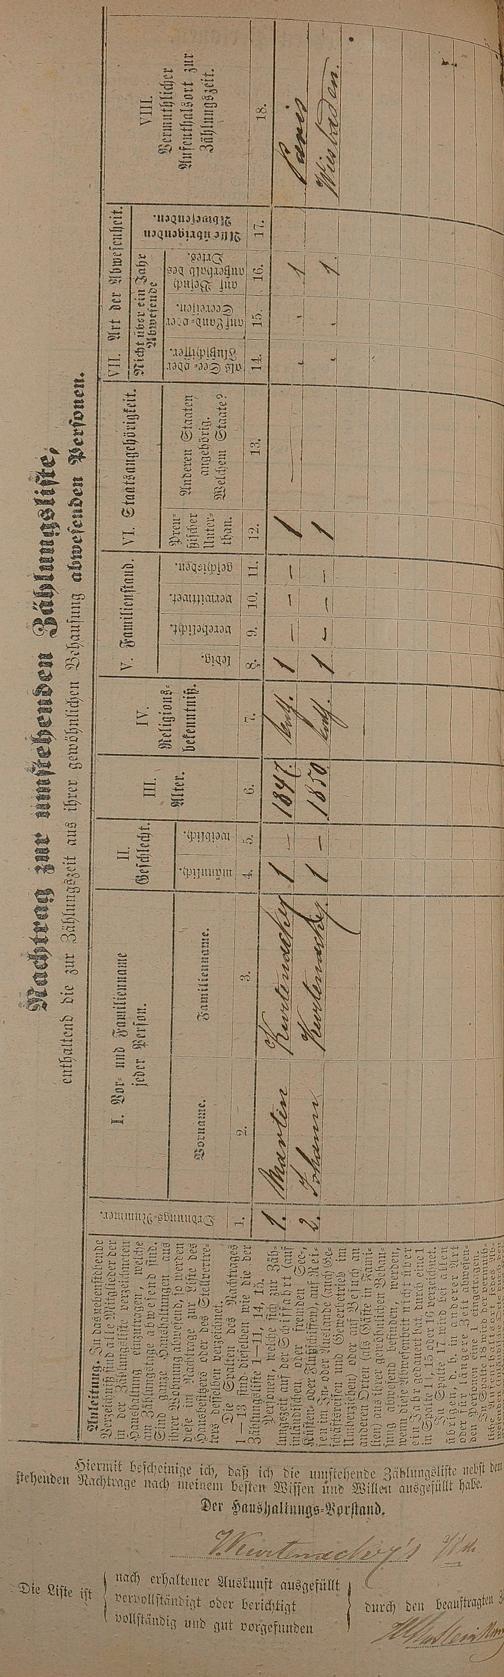 Nachtrag zur umstehenden Zählungsliste,
enthaltend die zur Zählungszeit aus ihrer gewöhnlichen Behausung abwesenden Personen.
Anleitung. In das nebenstehende
Verzeichniß sind alle Mitglieder der
in der Zählungsliste verzeichneten
Haushaltung einzutragen, welche
am Zählungstage abwesend sind.
Sind ganze Haushaltungen aus
ihrer Wohnung abwesend, so werden
diese im Nachtrage zur Liste des
Hausbesitzers oder des Stellvertre-
ters desselben verzeichnet.
Die Spalten des Nachtrages
1–13 sind dieselben wie die der
Zählungsliste 1–11, 14, 15.
Personen, welche sich zur Zäh-
lungszeit auf der Schiffahrt (auf
inländischen oder fremden See-,
Küsten- oder Flußschiffen), auf Rei-
sen im In- oder Auslande (auch Ge-
schäftsreisen und Gewerbetrieb im
Umherziehen) oder auf Besuch an
anderen Orten (als Gäste in Fami-
lien) aus ihrer gewöhnlichen Behau-
sung abwesend befinden, werden,
wenn diese Abwesenheit nicht über
ein Jahr gedauert hat, durch eine 1
in Spalte 14, 15 oder 16 verzeichnet.
In Spalte 17 wird bei allen
übrigen, d. h. in anderer Art
oder für längere Zeit abwesen-
den Personen
In Spalte 18 wird der
Ordnungs-Nummer.
I. Vor- und Familienname
jeder Person.
Vorname.
Familienname.
II.
Geschlecht.
männlich.
weiblich.
III.
Alter.
IV.
Religions-
bekenntniß.
V. Familienstand.
ledig.
verehelicht.
verwittwet.
geschieden.
VI. Staatsangehörigkeit.
Preu-
ßischer
Unter-
than.
Anderen Staaten
angehörig.
Welchem Staate?
VII. Art der Abwesenheit.
Nicht über ein Jahr
Abwesende
als See- oder
Flußschiffer.
auf Land- oder
Seereisen.
auf Besuch
außerhalb des
Ortes.
Alle übrigen
Abwesenden.
VIII.
Vermuthlicher
Aufenthaltsort zur
Zählungszeit.
1. 2. 3. 4. 5. 6. 7. 8. 9. 10. 11. 12. 13. 14. 15. 16. 17. 18.
1. Martin Kurtenacker 1 – 1847. kath. 1 – – – 1 1 Paris
2. Johann Kurtenacker 1 – 1850 kath. 1 – – – 1 1 Wiesbaden.
Hiermit bescheinige ich, daß ich die umstehende Zählungsliste nebst dem
stehenden Nachtrage nach meinem besten Wissen und Willen ausgefüllt habe.
Der Haushaltungs-Vorstand.
Kurtenacker's
Die Liste ist
nach erhaltener Auskunft ausgefüllt
vervollständigt oder berichtigt
vollständig und gut vorgefunden
durch den beauftragten